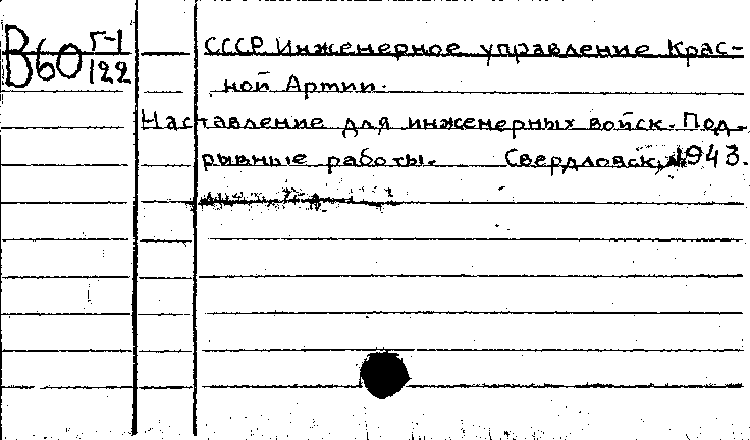 В60 Г-1
122
СССР Инженерное управление Крас-
ной Армии.
Наставление для инженерных войск. Под-
рывные работы. Свердловск, 1943.